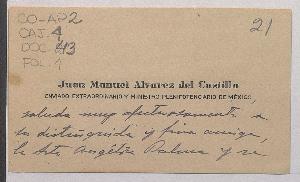 CO-AP2
CAJ. 4
DOC. 43
FOL. 1
21
Juan Manuel Alvarez del Castillo
ENVIADO EXTRAORDINARIO Y MINISTRO PLENIPOTENCIARIO DE MÉXICO,
saluda muy afectuosamente a
la distinguida y fina amiga,
la Srta. Angélica Palma y se